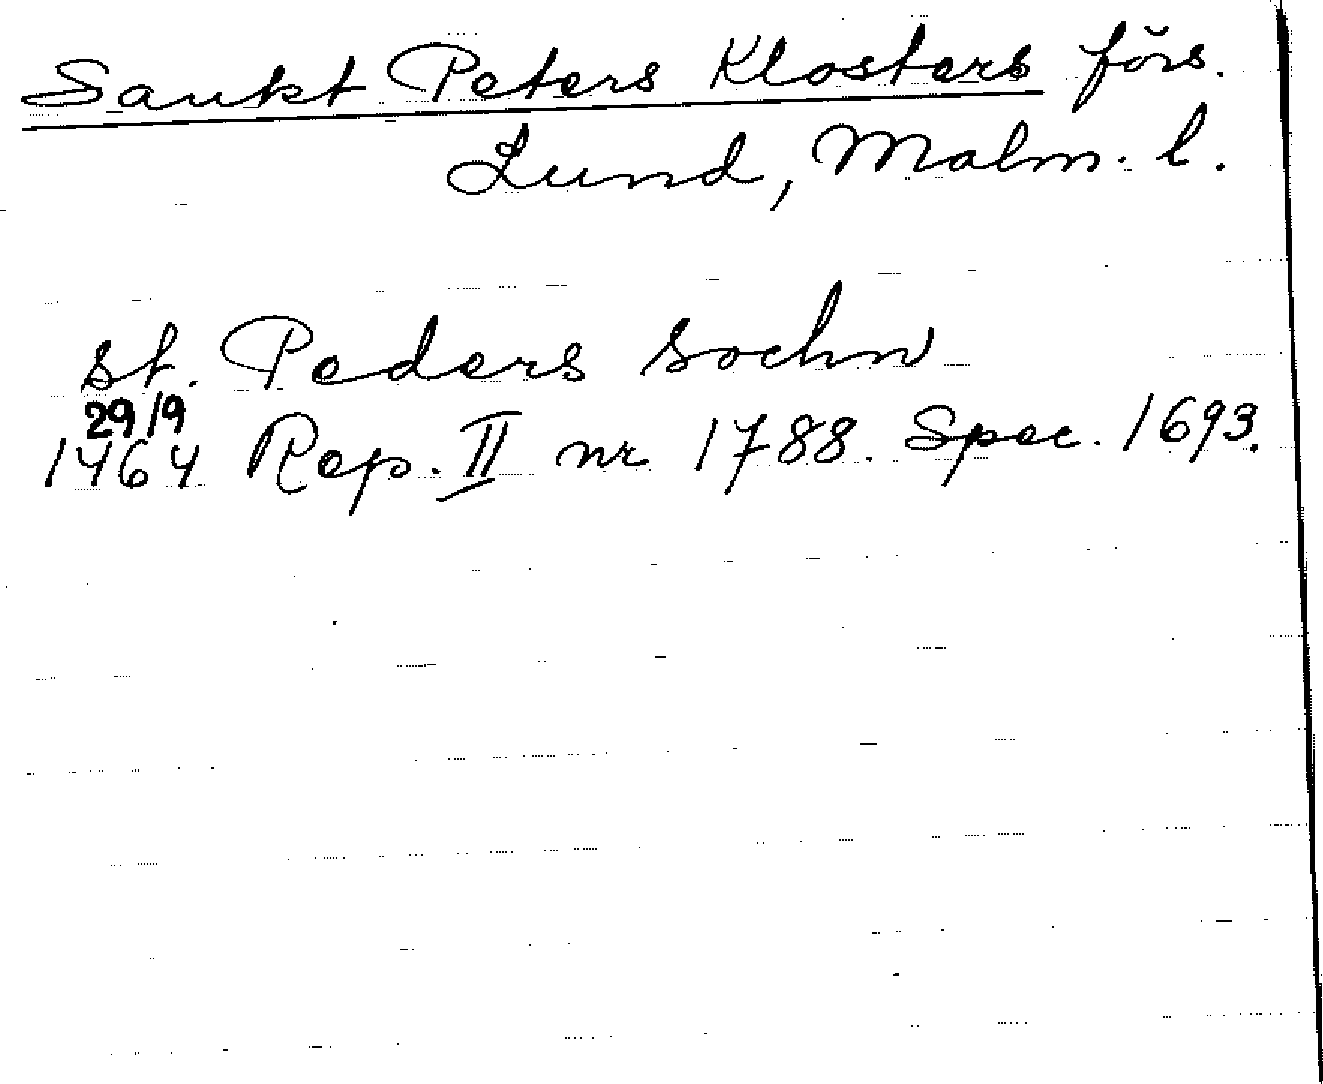 Sankt Peters Klosters förs.
Lund, Malm. l.
st. Peders sochn
29/9
1464 Rep. II nr 1788. Spec. 1693.